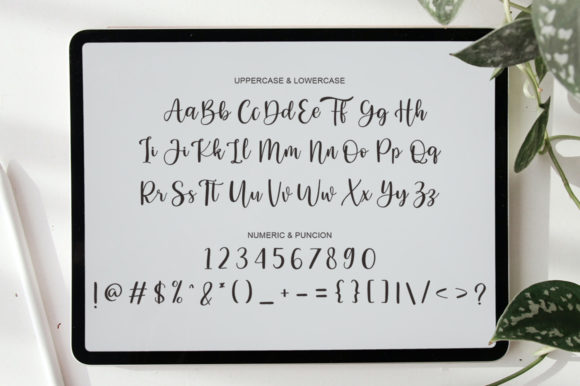 UPPERCASE & LOWERCASE
Aa Bb Cc Dd Ee Ff Gg Hh
Ii Jj Kk Ll Mm Nn Oo Pp Qq
Rr Ss Tt Uu Vv Ww Xx Yy Zz
NUMERIC & PUNCION
1234567890
!@#$%^&*()_+-={}[]|\/<>?